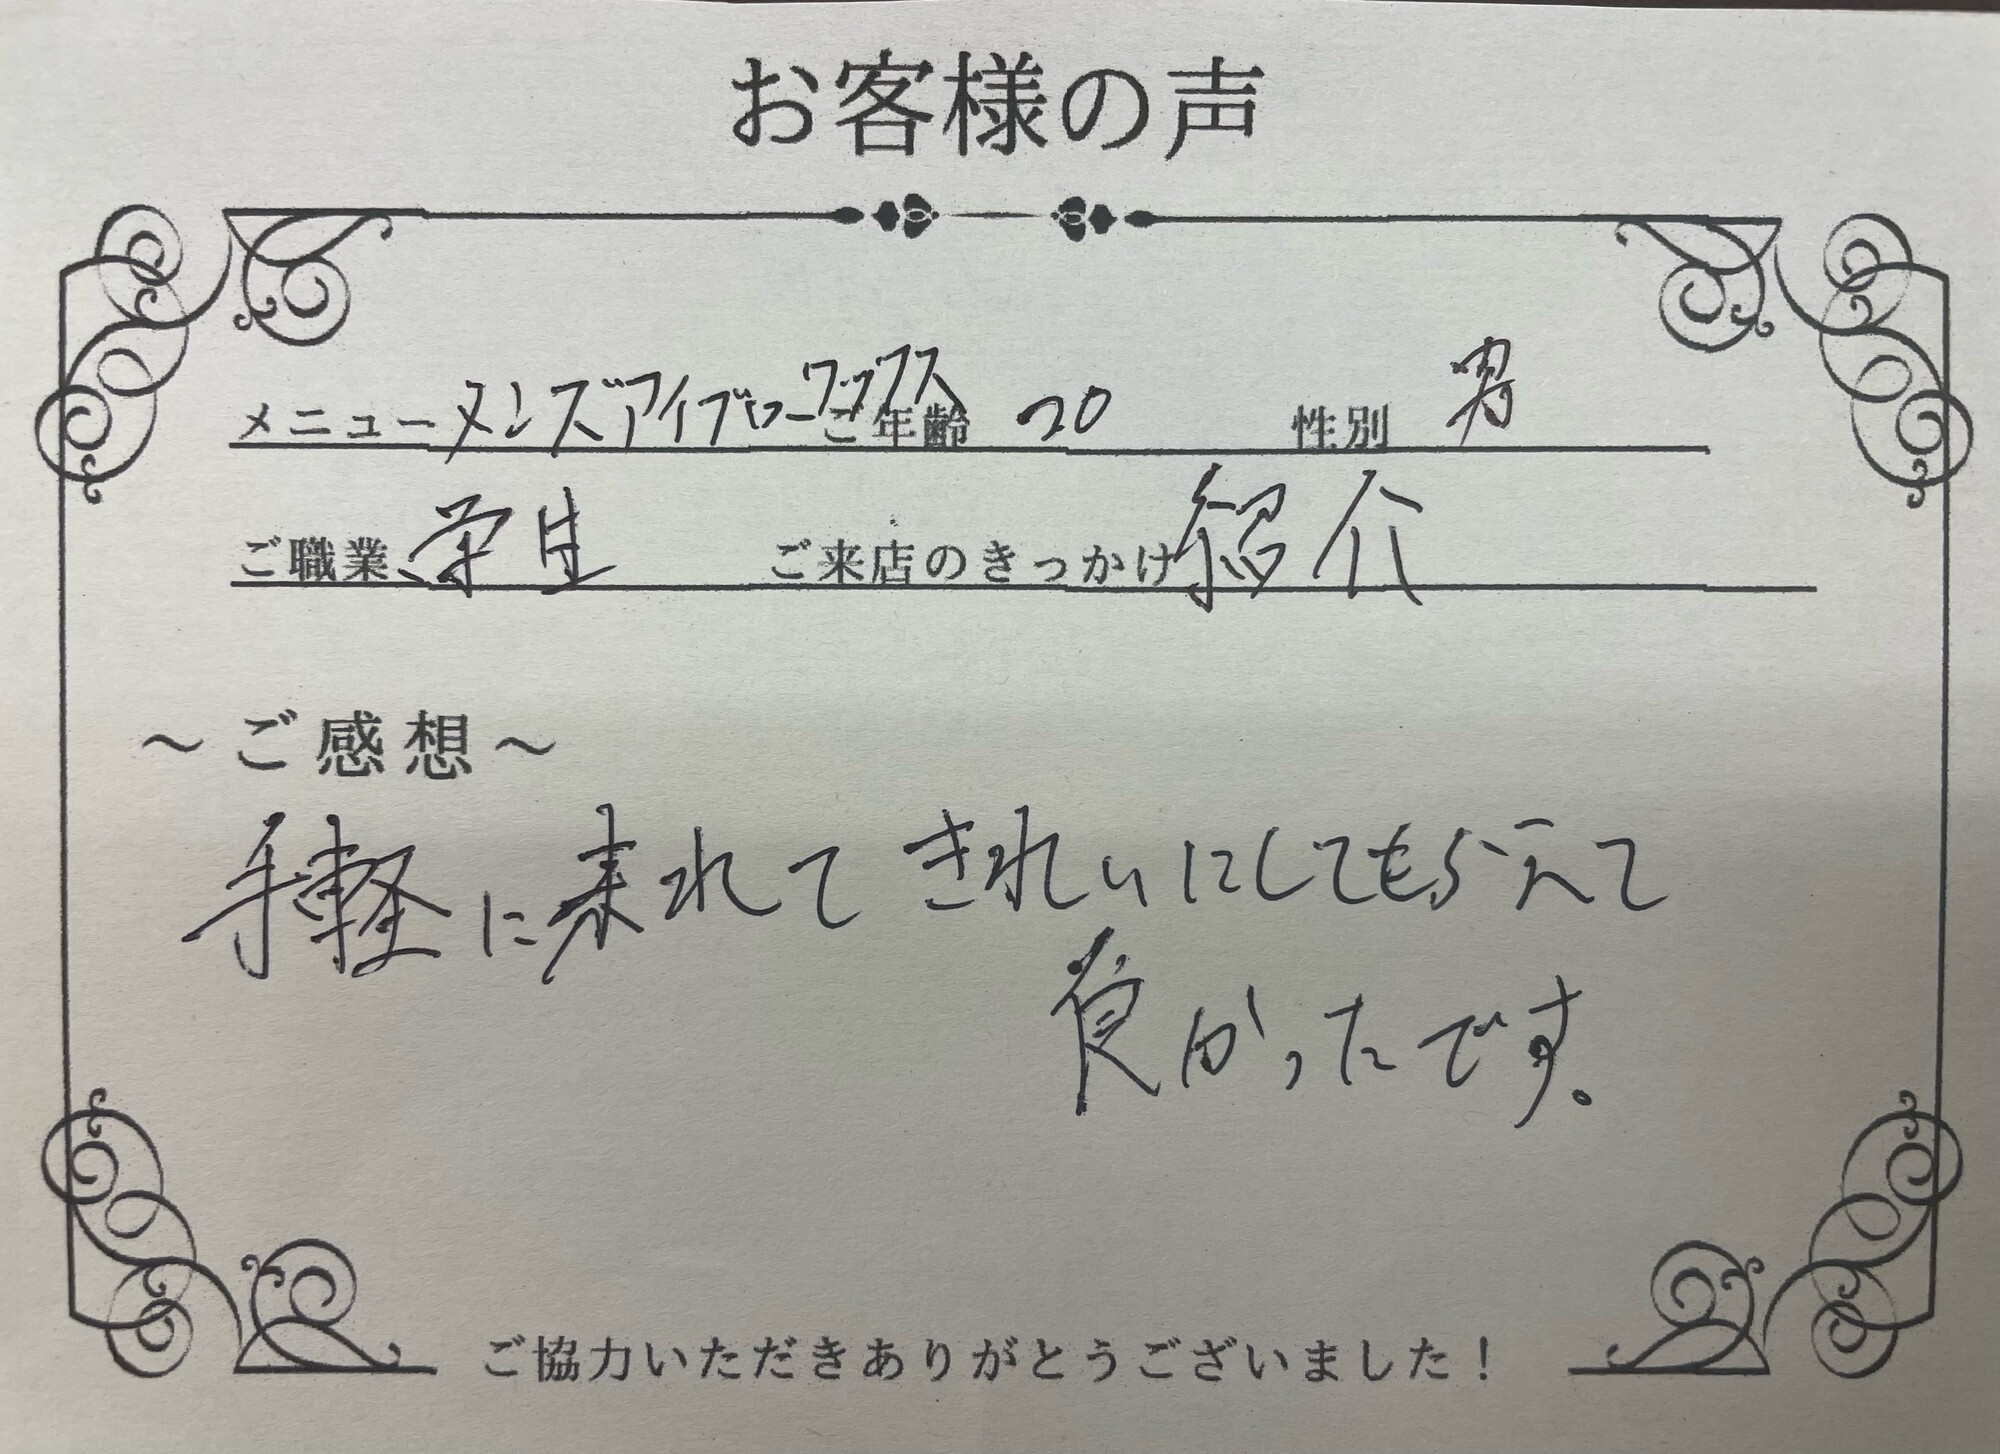 お客様の声
メニュー メンズアイブローワックス ご年齢 20 性別 男
ご職業 学生 ご来店のきっかけ 紹介
～ご感想～
手軽に来れてきれいにしてもらえて
良かったです。
ご協力いただきありがとうございました！